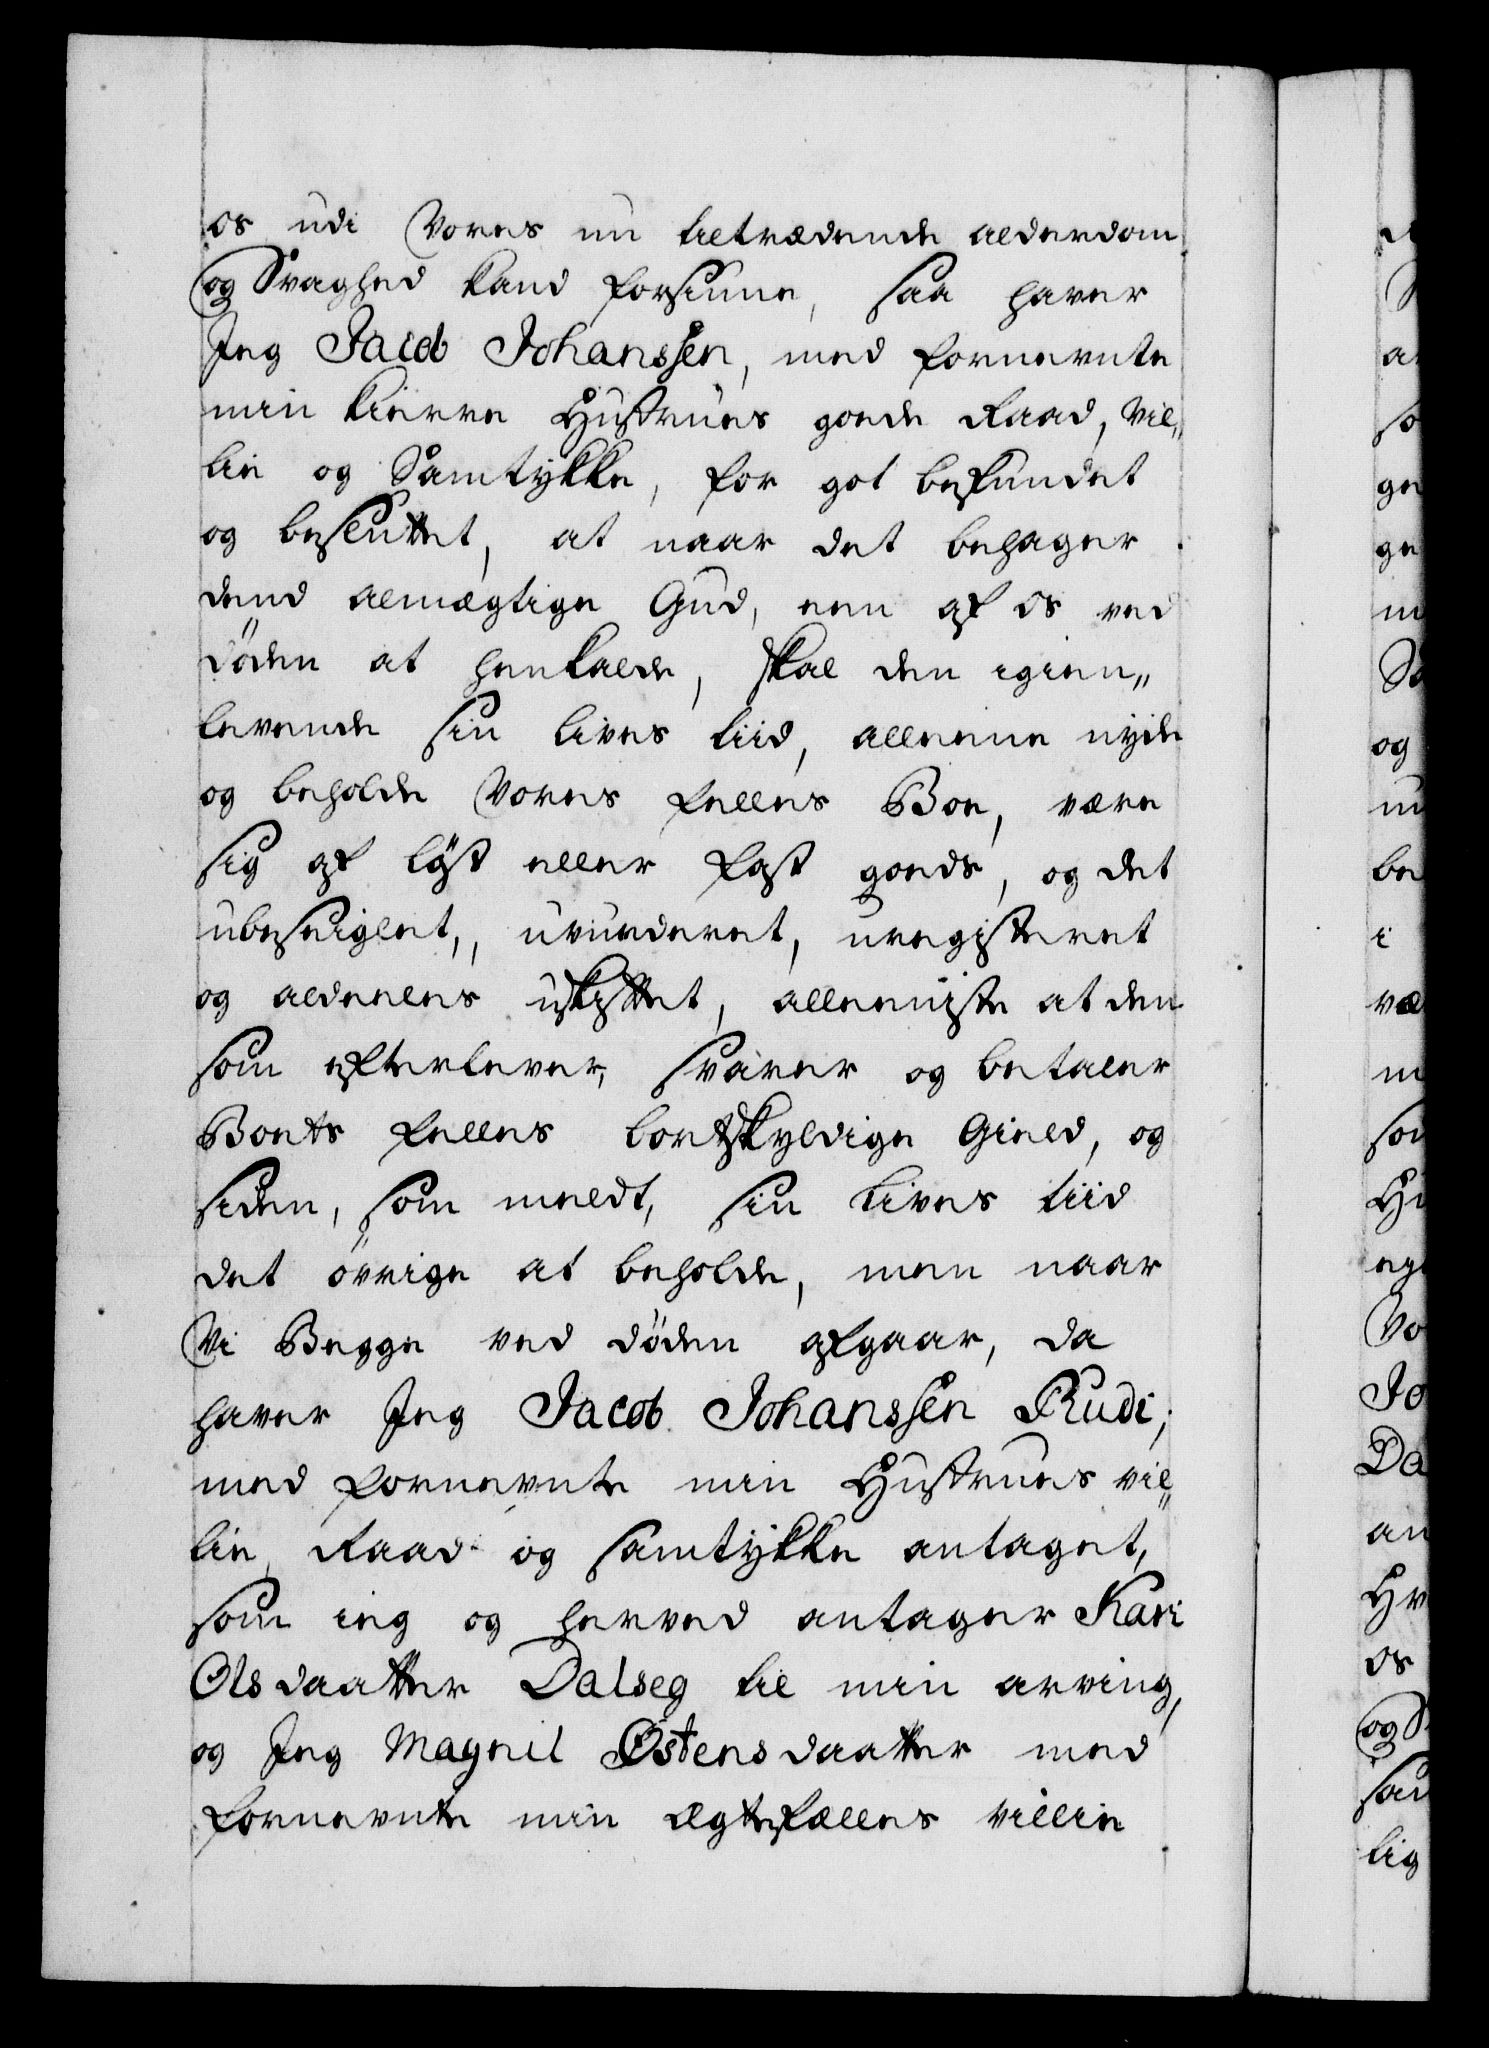 os udi Vores nu tiltrædende alderdom
og Svaghed kand forsiune, saa haver
Jeg Jacob Johanssen, med fornevnte
min kierre Hustrues goede Raad, vil„
lie og Samtykke, for got befundet
og besluttet, at naar det behager
dend almægtige Gud, een af os ved
döden at henkalde, skal den igien„
levende sin lives tiid, alleene nyde
og beholde Vores felles Boe, være
sig af löst eller fast goeds, og det
ubeseiglet, uvurderet, uregisteret
og aldeeles uskiftet, alleeniste at den
som efterlever, svarer og betaler
Boets felles bortskyldige Gield, og
siden, som meldt, sin Lives tiid
det övrige at beholde, men naar
Vi Begge ved döden afgaar, da
haver Jeg Jacob Johanssen Rudi,
med fornevnte min Hustrues vil„
lie, Raad og samtykke antaget,
som ieg og herved antager Kari
Olsdaatter Dalseg til min arving,
og Jeg Magnil Østensdaatter med
fornevnte min Ægtefælles villie